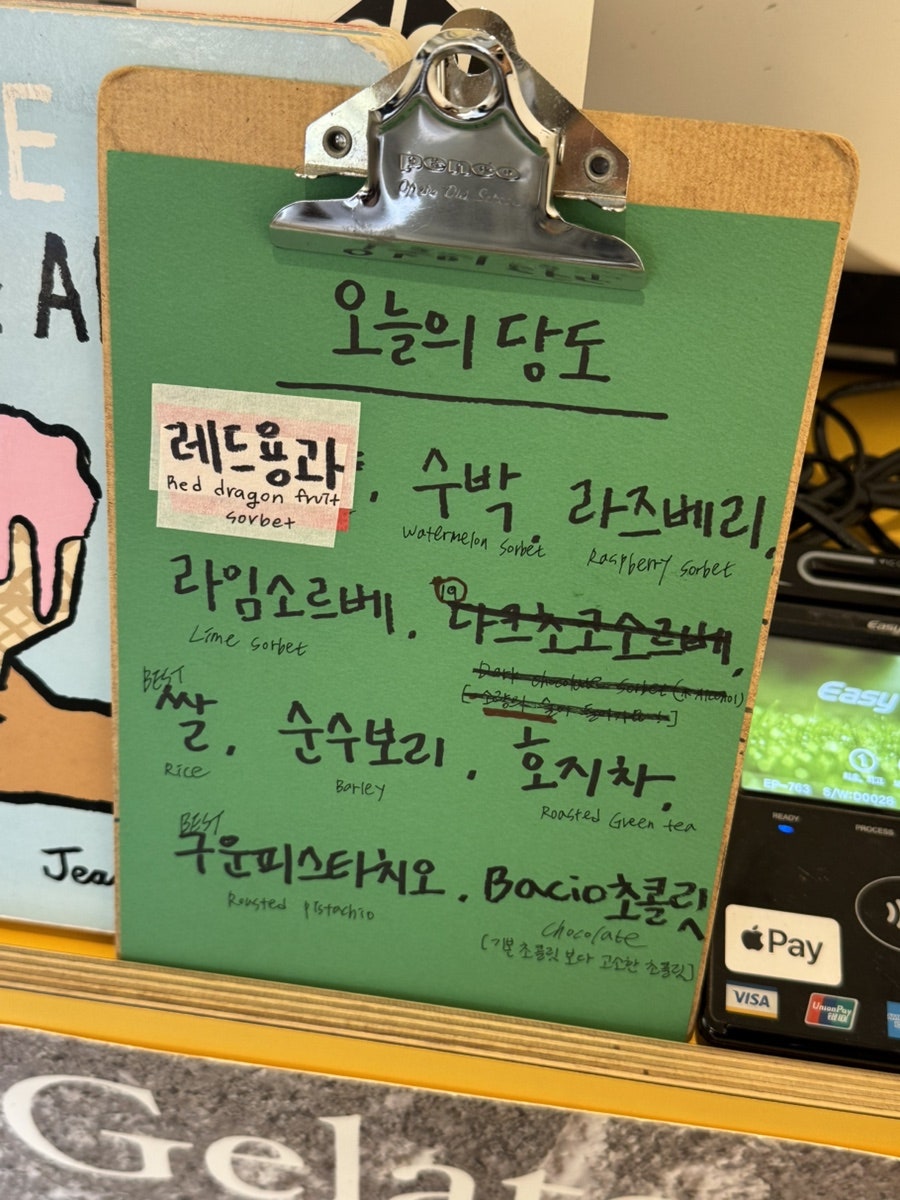 penco
오늘의 당도
레드용과
Red dragon fruit
sorbet
수박.
Watermelon sorbet
라즈베리.
Raspberry sorbet
라임소르베.
Lime sorbet
19
다크초코소르베.
Dark chocolate sorbet (in Alcohol)
BEST
쌀.
Rice
순수보리.
Barley
호지차.
Roasted Green tea
BEST
구운피스타치오.
Roasted pistachio
Bacio초콜릿
Chocolate
[기본 초콜릿 보다 고소한 초콜릿]
Easy
EP-763 S/W:00028
READY
PROCESS
Pay
VISA
UnionPay
Jea
Gelat